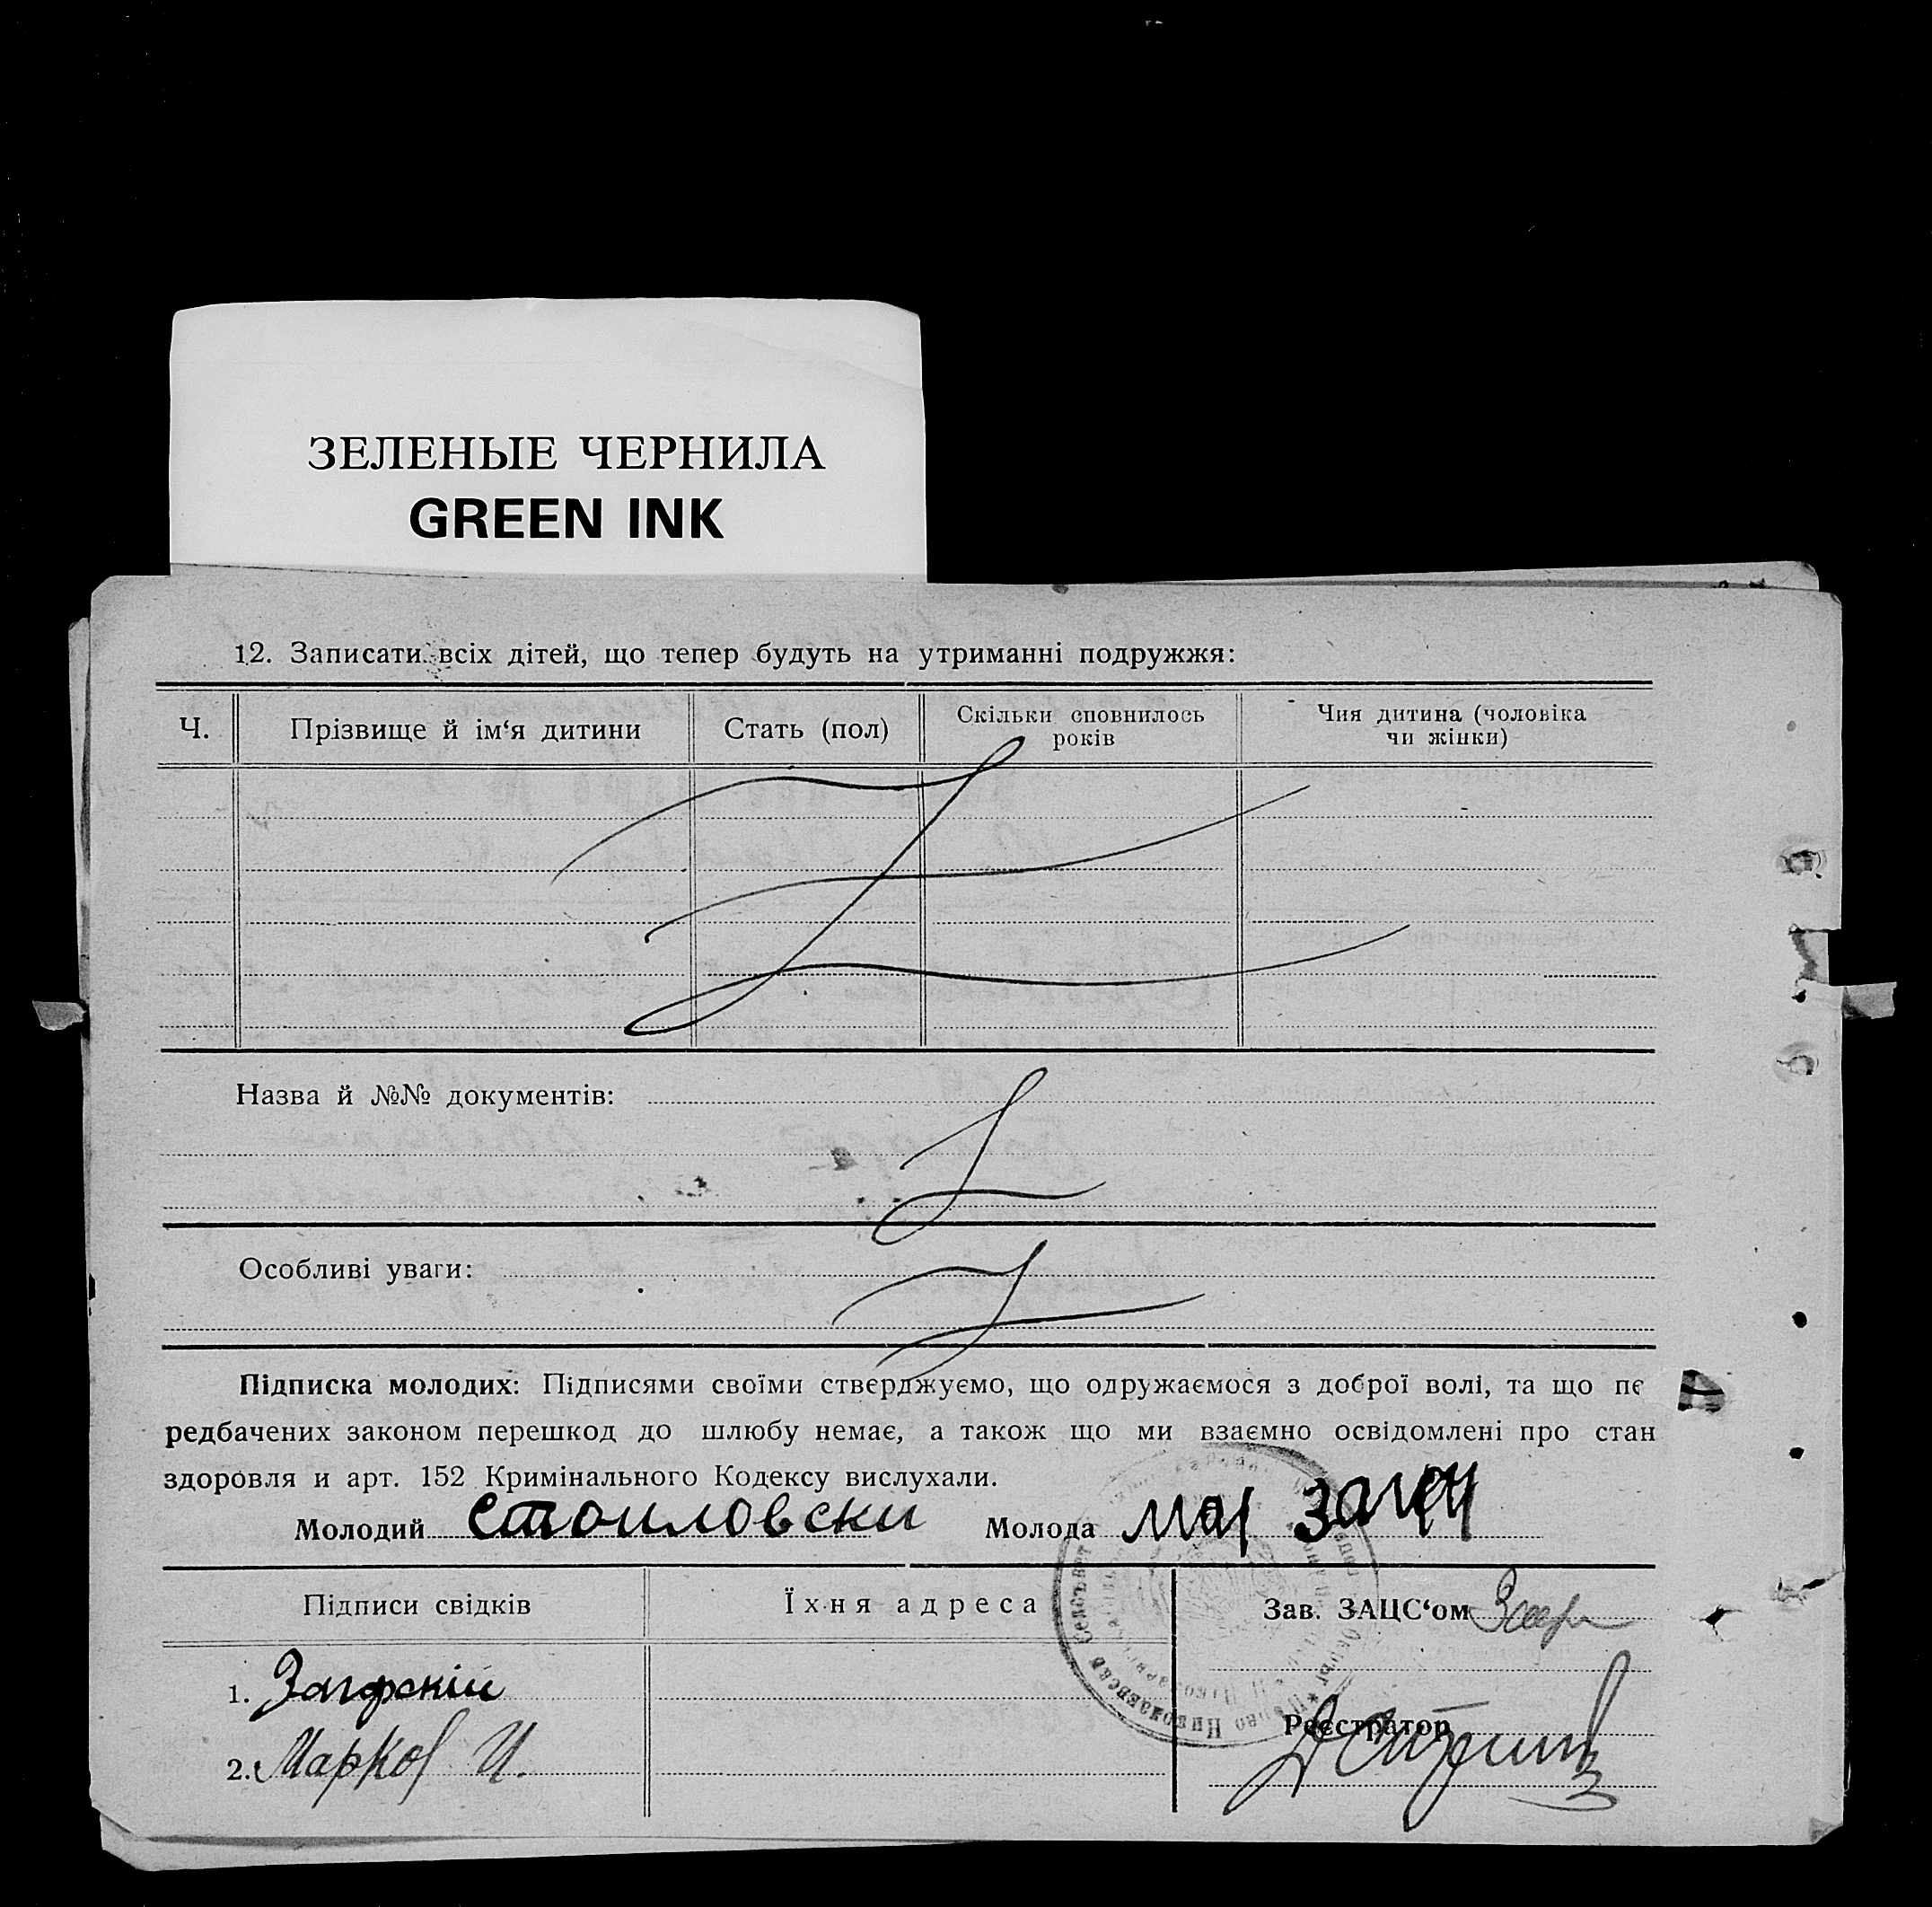 ЗЕЛЕНЫЕ ЧЕРНИЛА
GREEN INK
12. Записати всіх дітей, що тепер будуть на утриманні подружжя:
Ч. Прізвище й ім‘я дитини Стать (пол) Скільки сповнилось років Чия дитина (чоловіка чи жінки)
Назва й №№ документів:
Особливі уваги:
Підписка молодих: Підписями своїми стверджуємо, що одружаємося з доброї волі, та що пе
редбачених законом перешкод до шлюбу немає, а також що ми взаємно освідомлені про стан
здоровля и арт. 152 Кримінального Кодексу вислухали.
Молодий Стоиловски Молода
Підписи свідків Їхня адреса Зав. ЗАЦС‘ом
1.
Реєстратор
2. Марков И.